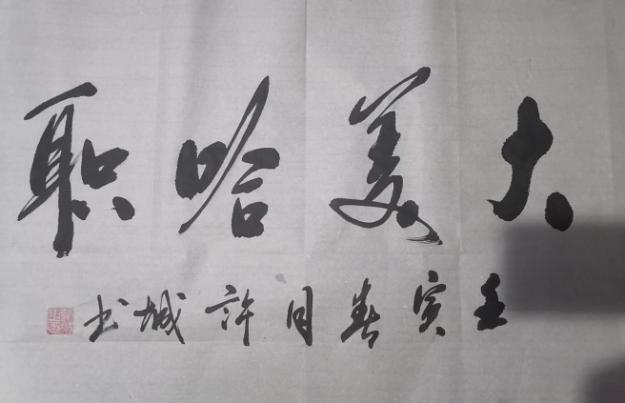 大美哈职
壬寅春月许城书